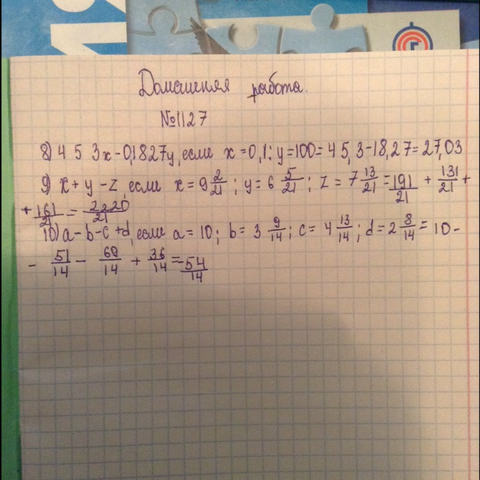 ИЯ
Домашняя работа.
№1127
8) 453x-0,1827y, если x=0,1; y=100=45,3-18,27=27,03
9) x+y-z, если x=9 2/21; y=6 5/21; z=7 13/21=191/21+131/21+
+161/21=2220/21
10) a-b-c+d, если a=10; b=3 9/14; c=4 13/14; d=2 8/14=10-
- 51/14 - 69/14 + 36/14 = 54/14